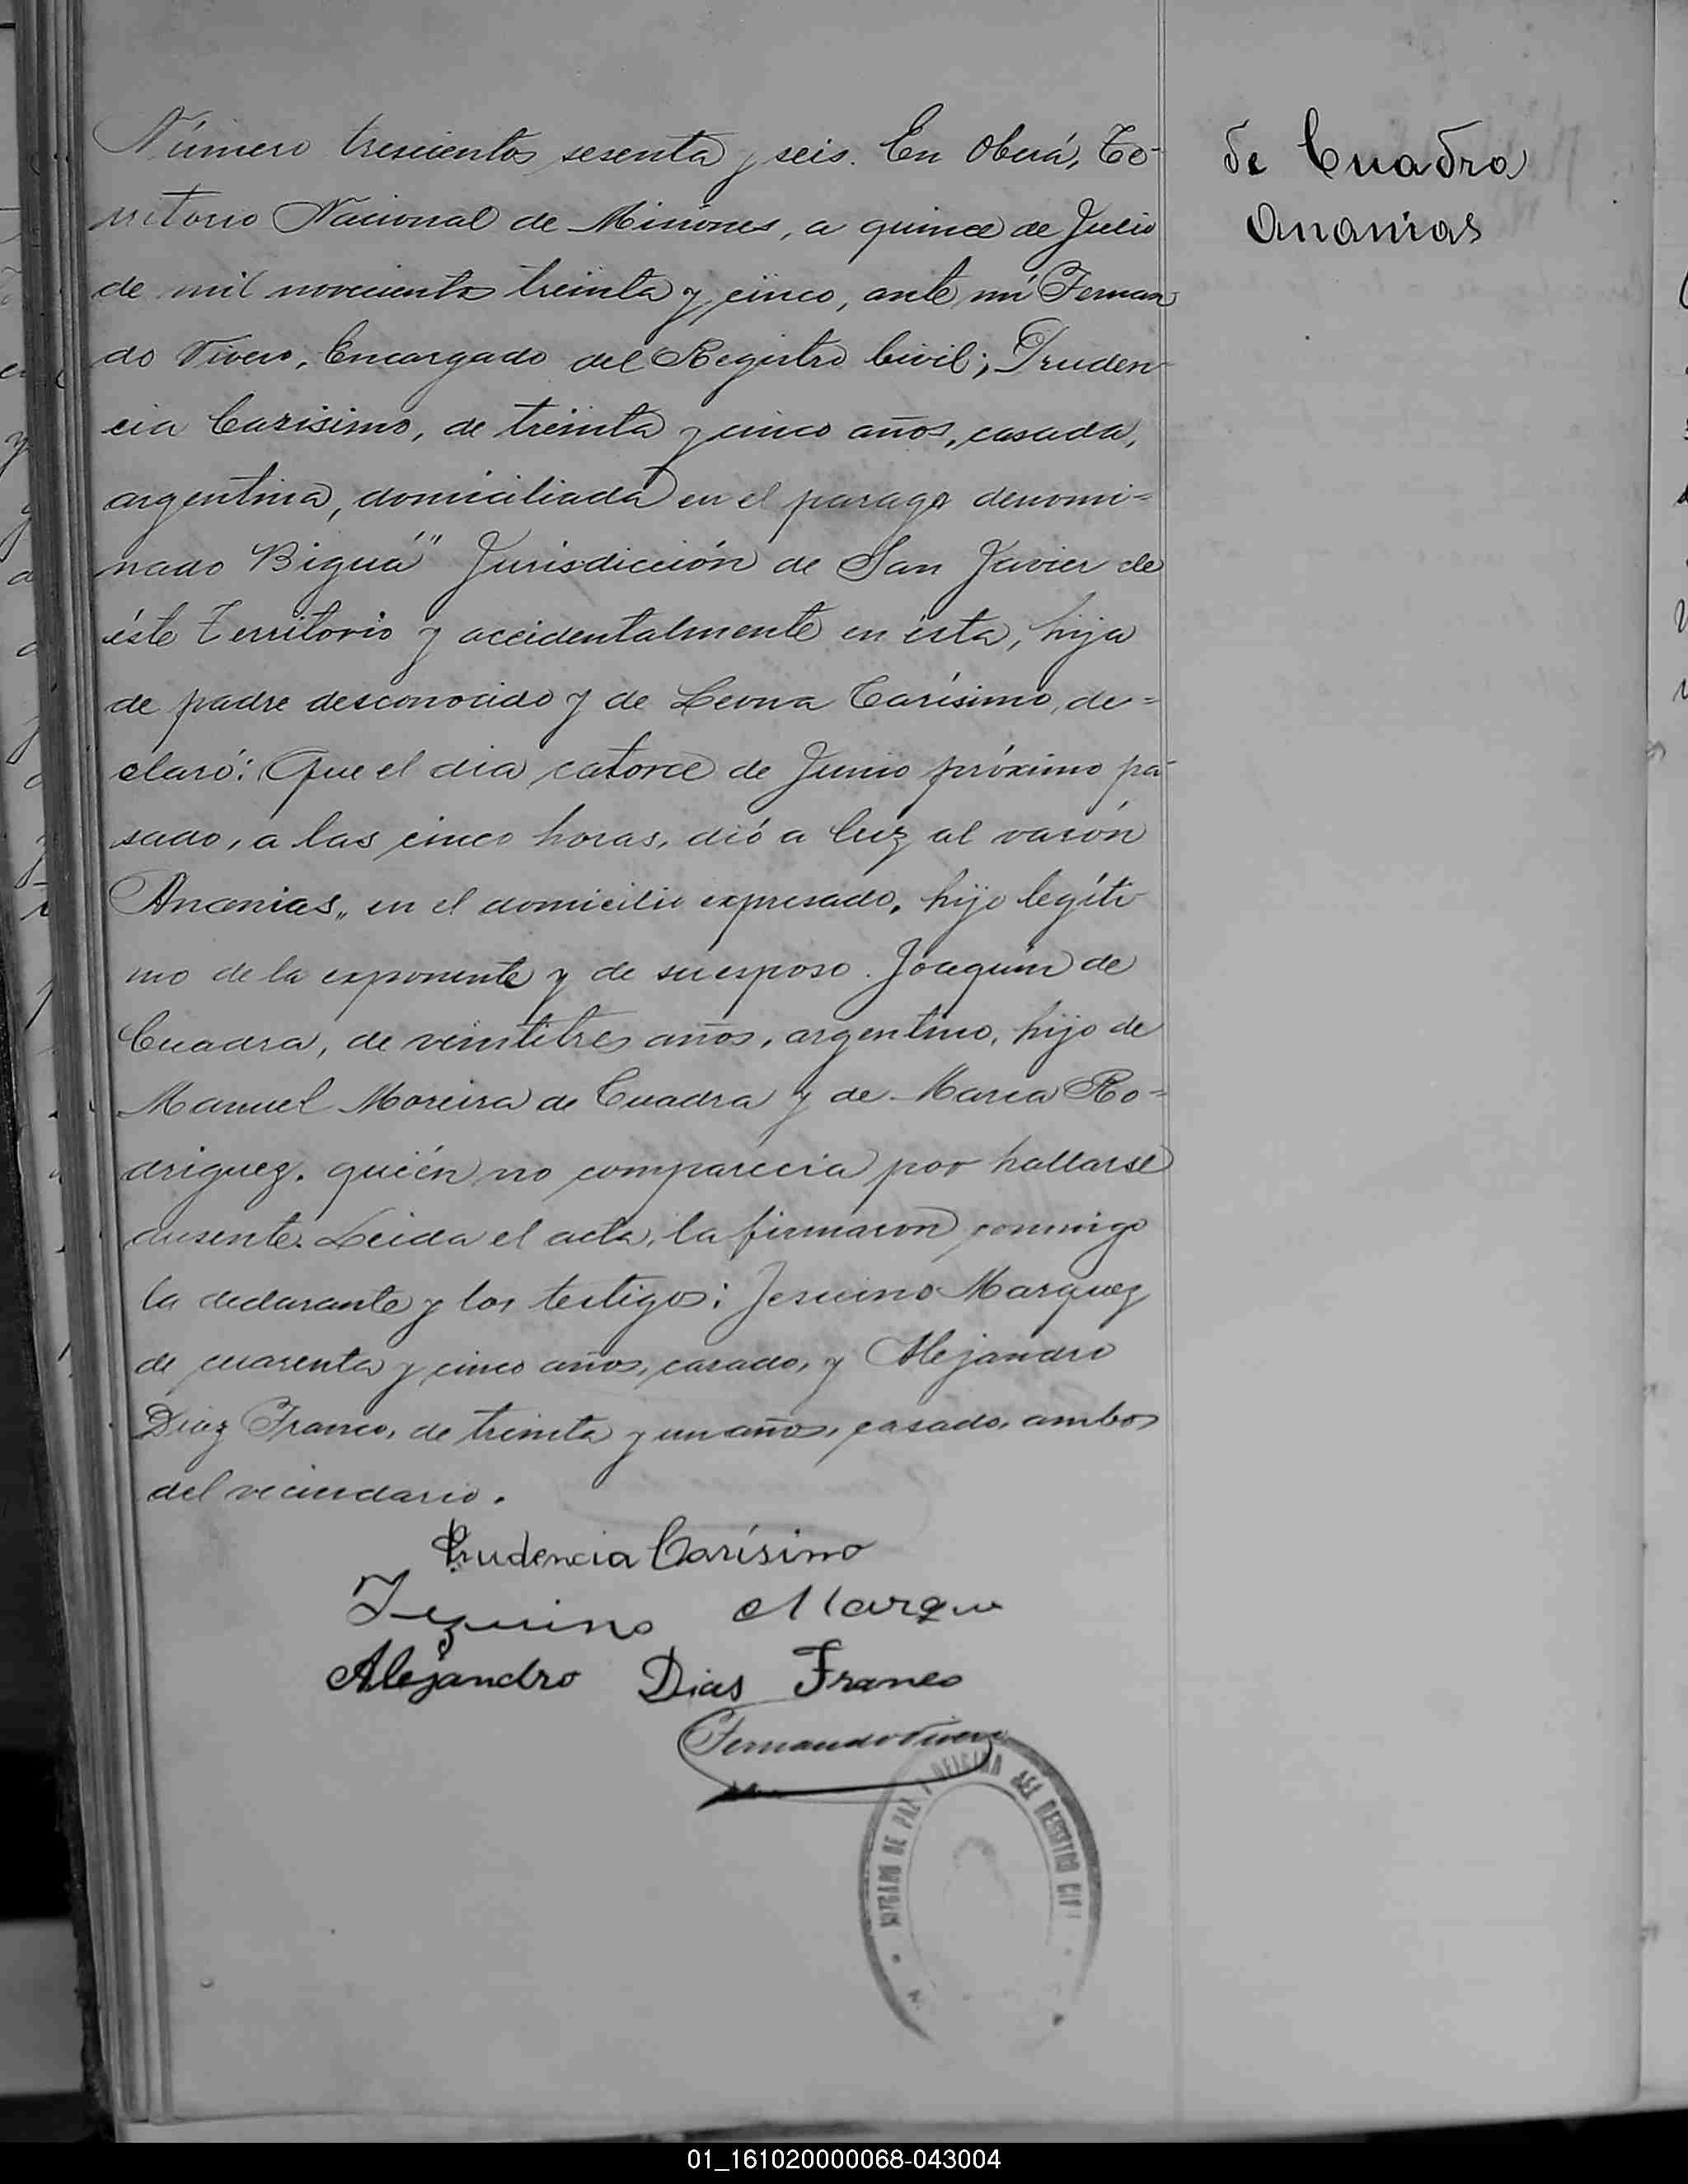 Número trescientos sesenta y seis. En Oberá, Te-
rritorio Nacional de Misiones, a quince de Julio
de mil novecientos treinta y cinco, ante mí Fernan
do Vivero, Encargado del Registro Civil; Pruden-
cia Carisimo, de treinta y cinco años, casada,
argentina, domiciliada en el parage denomi=
nado "Biguá" Jurisdicción de San Javier de
éste Territorio y accidentalmente en ésta, hija
de padre desconocido y de Leona Carísimo, de=
claró: Que el dia catorce de Junio próximo pa-
sado, a las cinco horas, dió a luz al varón
Ananias,, en el domicilio expresado, hijo legíti
mo de la exponente y de su esposo. Joaquin de
Cuadra, de veintitres años, argentino, hijo de
Manuel Moreira de Cuadra y de Maria Ro=
driguez. quién no comparecia por hallarse
ausente. Leida el acta, la firmaron conmigo
la declarante y los testigos: Jesuino Marquez
de cuarenta y cinco años, casado, y Alejandro
Diaz Franco, de treinta y un años, casado, ambos
del vecindario.
Prudencia Carísimo
Jezuino Marque
Alejandro Dias Franco
Fernando Vivero
JUZGADO DE PAZ Y OFICINA DEL REGISTRO CIVIL
de Cuadra
Ananias
01_161020000068-043004